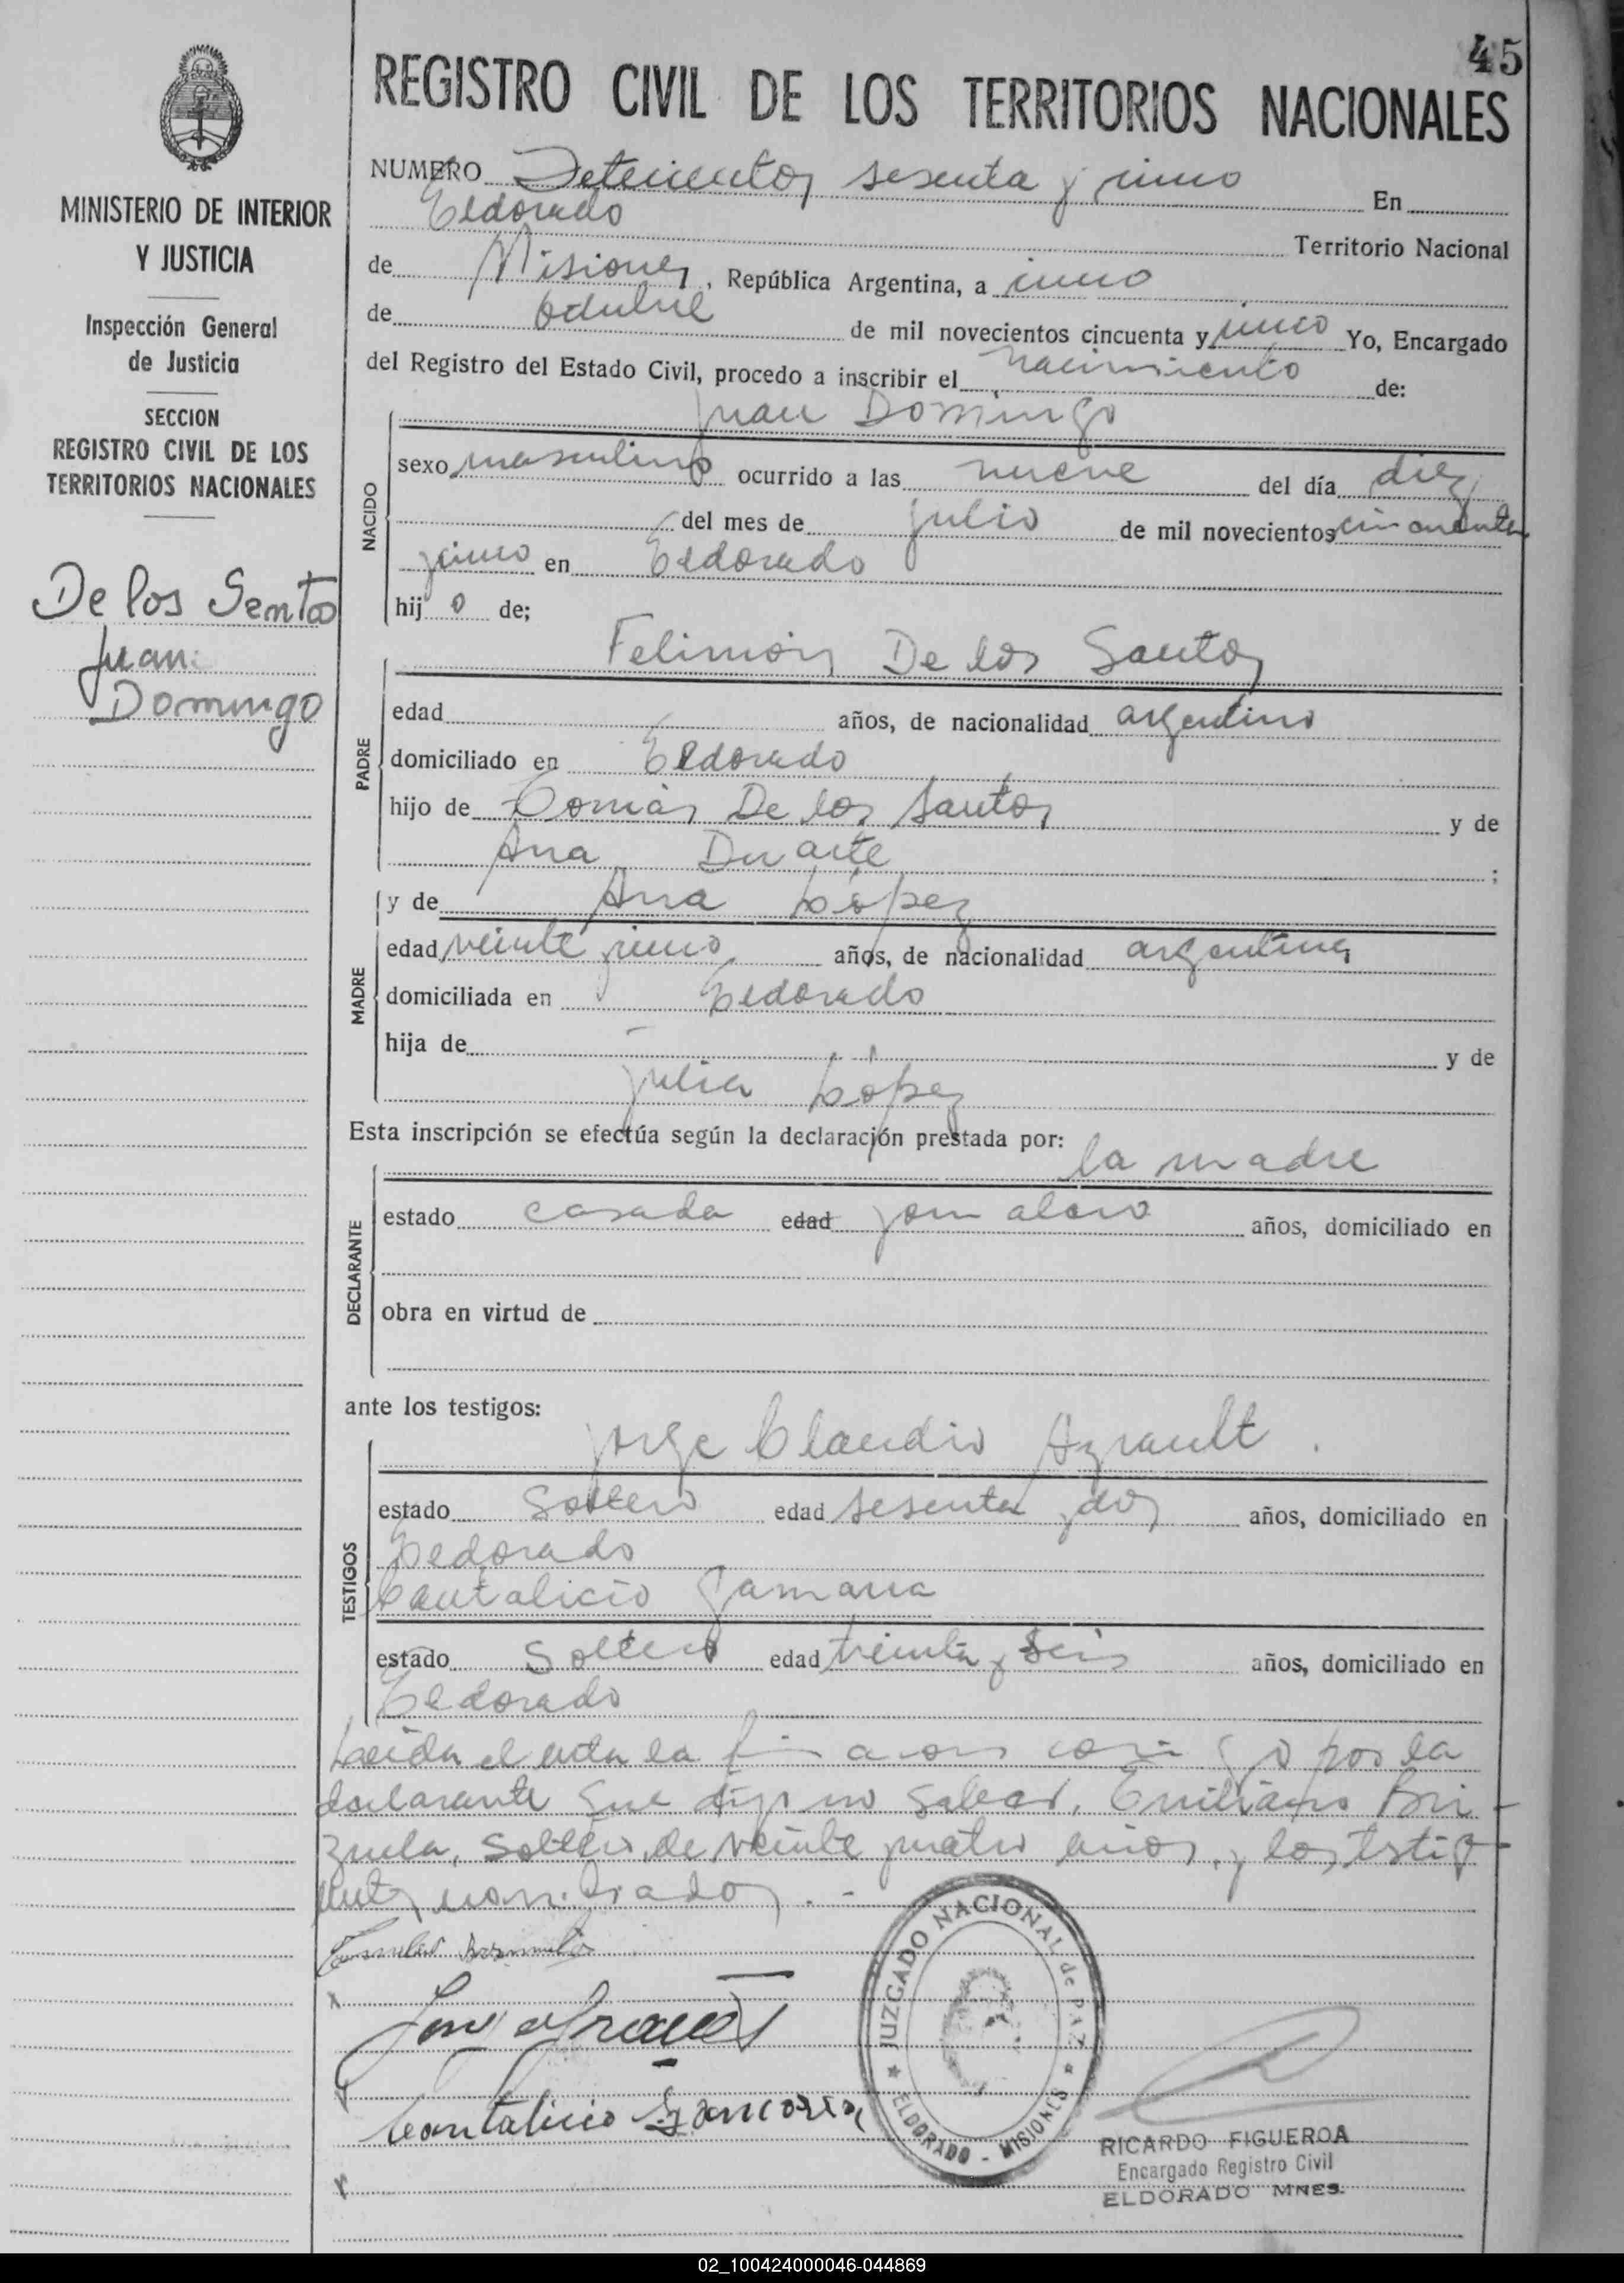 45
REGISTRO CIVIL DE LOS TERRITORIOS NACIONALES
MINISTERIO DE INTERIOR
Y JUSTICIA
Inspección General
de Justicia
SECCION
REGISTRO CIVIL DE LOS
TERRITORIOS NACIONALES
De los Santos
Juan
Domingo
NUMERO Setecientos sesenta y cinco En
Eldorado
Territorio Nacional
de Misiones, República Argentina, a cinco
de octubre de mil novecientos cincuenta y cinco Yo, Encargado
del Registro del Estado Civil, procedo a inscribir el nacimiento de:
NACIDO
Juan Domingo
sexo masculino ocurrido a las nueve del día diez
del mes de julio de mil novecientos cincuenta
y cinco en Eldorado
hijo de;
PADRE
Felimón De los Santos
edad años, de nacionalidad argentino
domiciliado en Eldorado
hijo de Tomás De los Santos y de
Ana Duarte ;
y de Ana López
MADRE
edad veinte y cinco años, de nacionalidad argentina
domiciliada en Eldorado
hija de y de
Julia López
Esta inscripción se efectúa según la declaración prestada por:
DECLARANTE
la madre
estado casada edad jornalero años, domiciliado en
obra en virtud de
ante los testigos:
TESTIGOS
Jorge Claudio
estado Soltero edad sesenta y dos años, domiciliado en
Eldorado
Cantalicio Gamarra
estado Soltero edad treinta y seis años, domiciliado en
Eldorado
Leída el acta la por la
declarante que dijo no saber, Emiliano Bri
zuela, soltero, de veinte y cuatro años, y los testigos
nombrados.-
Cantalicio Gamarra
JUZGADO NACIONAL de PAZ
ELDORADO - MISIONES
RICARDO FIGUEROA
Encargado Registro Civil
ELDORADO MNES.
02_100424000046-044869